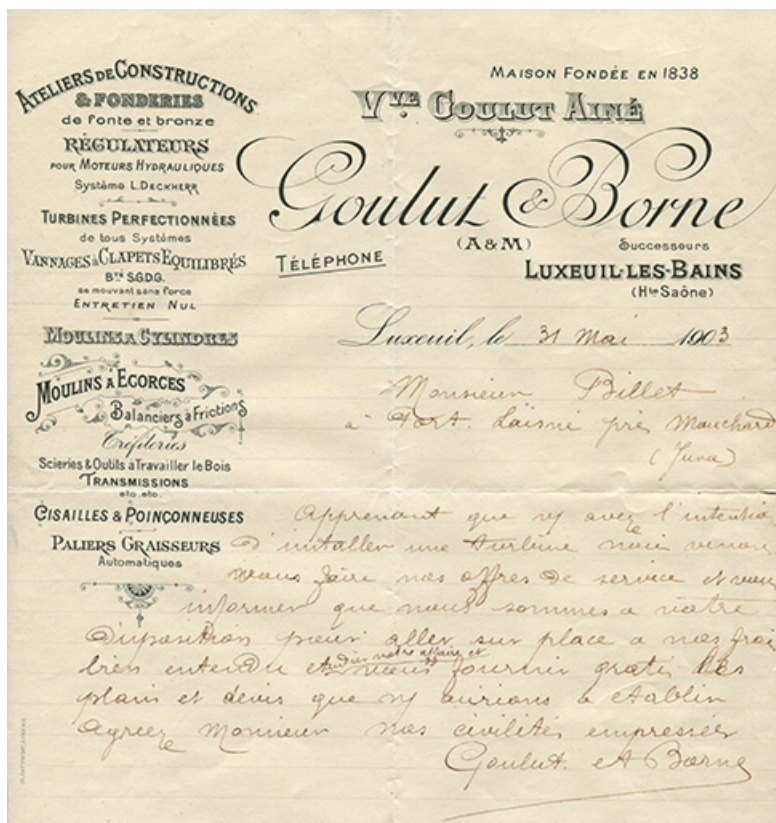 ATELIERS DE CONSTRUCTIONS
& FONDERIES
de fonte et bronze
RÉGULATEURS
POUR MOTEURS HYDRAULIQUES
Système L. DECKHERR
TURBINES PERFECTIONNÉES
de tous Systèmes
VANNAGES à CLAPETS EQUILIBRÉS
Bté S.G.D.G.
se mouvant sans force
ENTRETIEN NUL
MOULINS A CYLINDRES
MOULINS A ECORCES
Balanciers à Frictions
Tréfileries
Scieries & Outils à Travailler le Bois
TRANSMISSIONS
etc. etc.
CISAILLES & POINÇONNEUSES
PALIERS GRAISSEURS
Automatiques
MAISON FONDÉE EN 1838
VVE. GOULUT AINÉ
Goulut & Borne
(A & M) Successeurs
TÉLÉPHONE
LUXEUIL-LES-BAINS
(Hte Saône)
Luxeuil, le 31 Mai 1903
Monsieur Billet
à Port. Laisné près Mouchard
(Jura)
Apprenant que vs avez l'intentio
d'installer une turbine nous venons
vous faire nos offres de service et vous
informer que nous sommes a votre
disposition pour aller sur place a nos frais
bien entendu etudier votre affaire et vous fournir gratis les
plans et devis que vs aurions a etablir
Agreez Monsieur nos civilités empressées
Goulut. et Borne